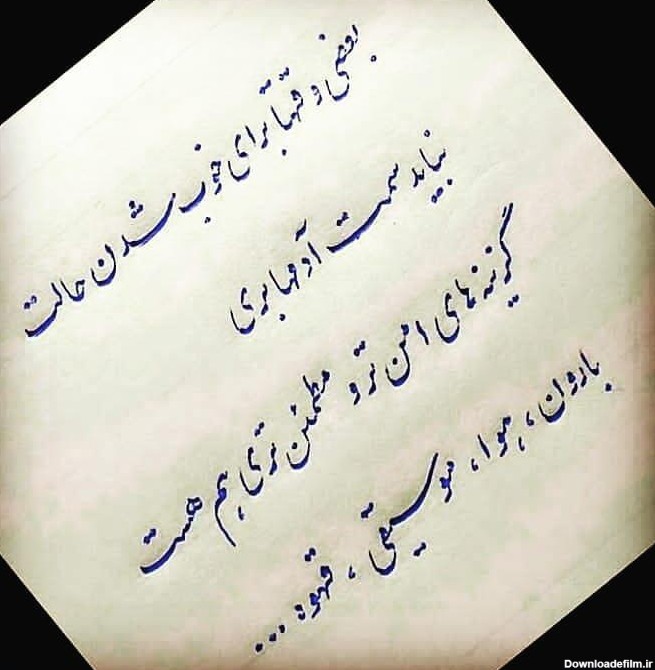 بعضی وقتها برای خوب شدن حالت
نباید سمت آدمها بری
گزینه های امن تر و مطمئن تری هم هست
بارون، هوا، موسیقی، قهوه...
Downloadefilm.ir